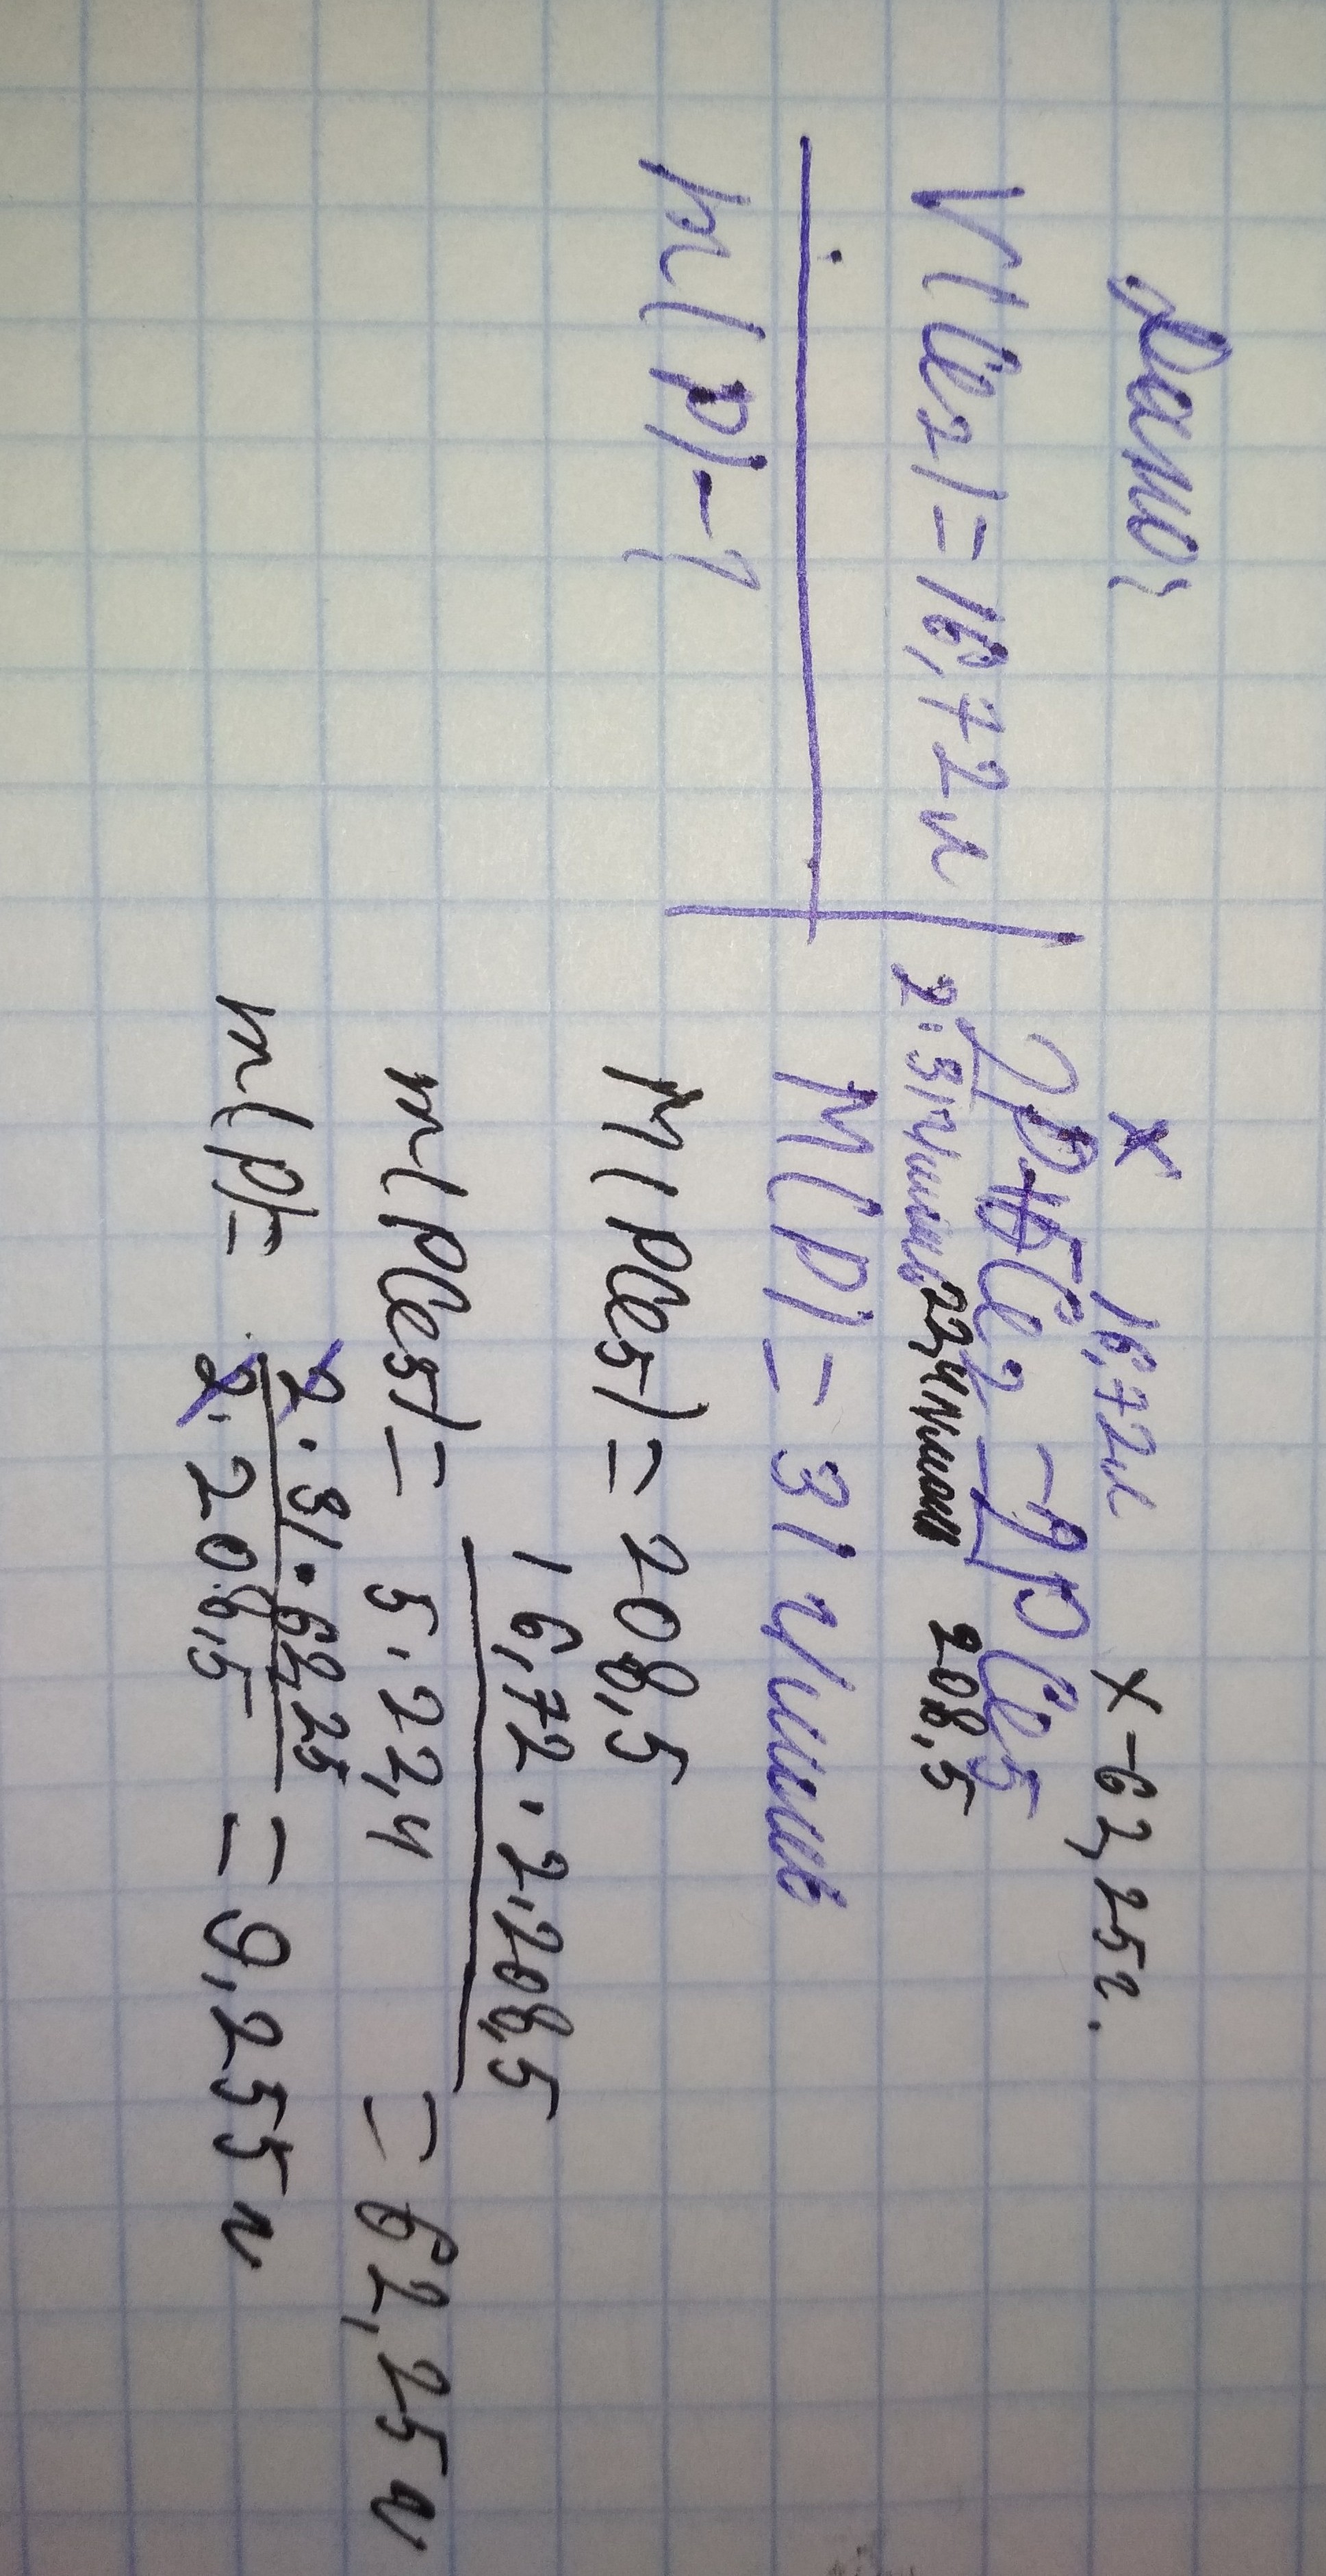 Дано:
V(Cl2)=16,72л
m(P)-?
x 16,72л x-62,25г.
2P+5Cl2-2PCl5
2·31г/моль 22,4л/моль 208,5
M(P)=31г/моль
M(PCl5)=208,5
m(PCl5)= 16,72·2·208,5 / 5·22,4 = 62,25г
m(P)= 2·31·62,25 / 2·208,5 = 9,255г